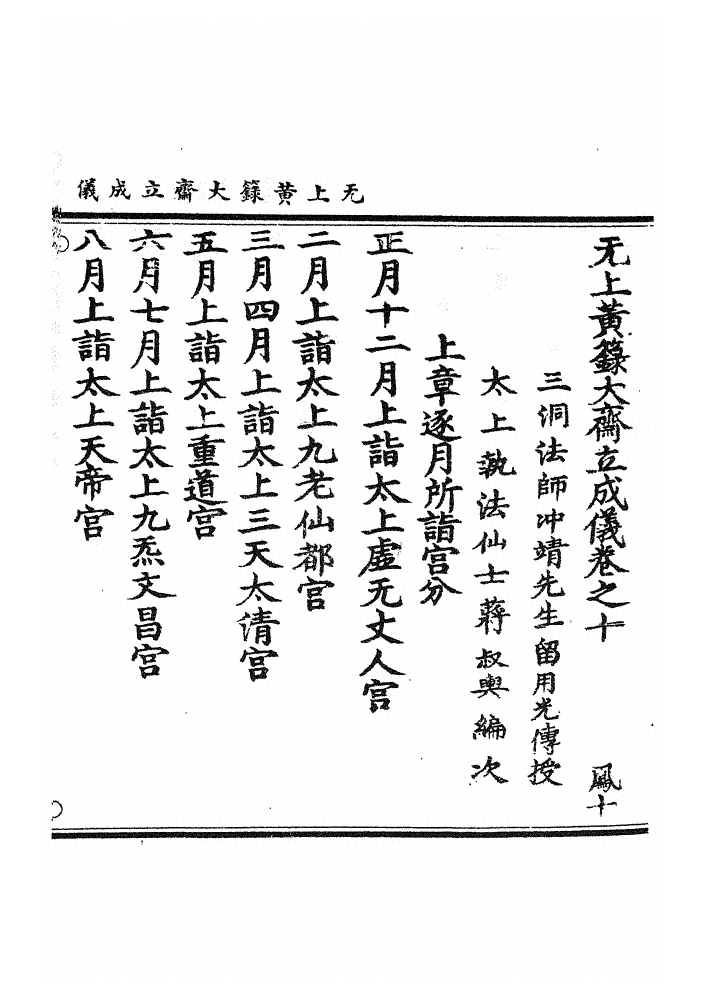 无上黄籙大齋立成儀
无上黃籙大齋立成儀卷之十 鳳十
三洞法師冲靖先生留用光傳授
太上執法仙士蔣叔輿編次
上章逐月所詣宫分
正月十二月上詣太上虛无丈人宫
二月上詣太上九老仙都宫
三月四月上詣太上三天太清宫
五月上詣太上重道宫
六月七月上詣太上九炁文昌宫
八月上詣太上天帝宫